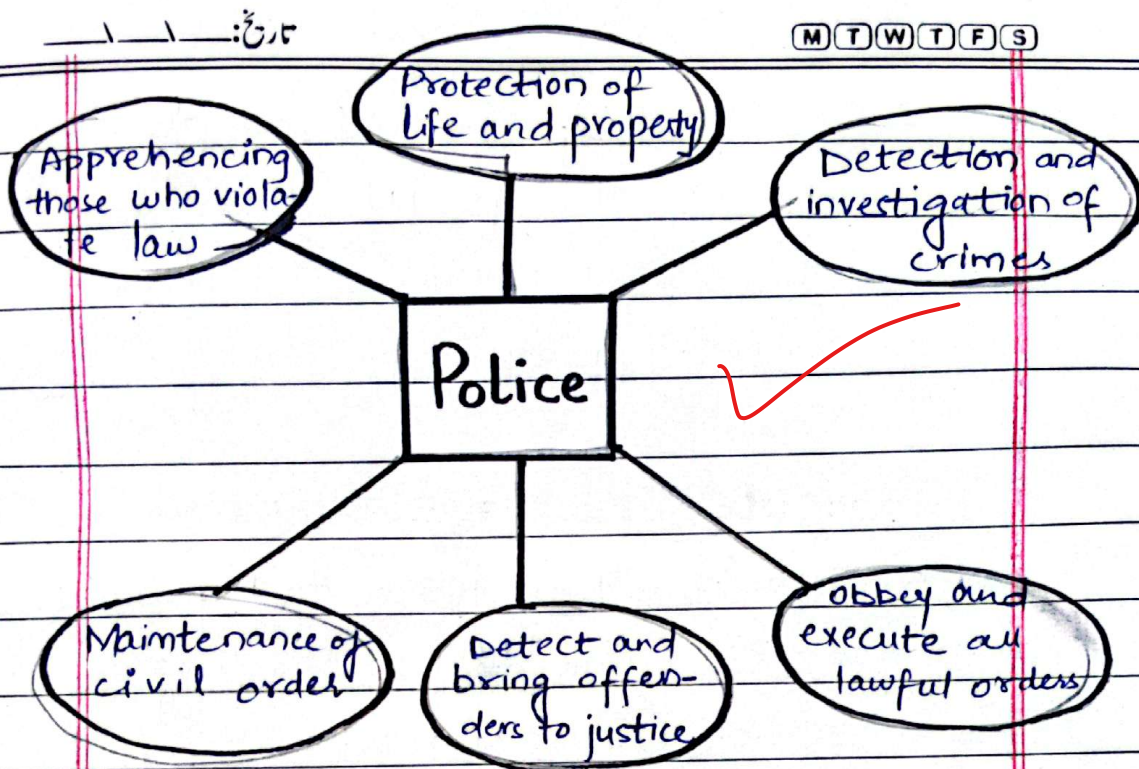 تاریخ: ___\___\___
M T W T F S
Protection of
life and property
Apprehencing
those who viola-
te law
Detection and
investigation of
crimes
Police
Maimtenance of
civil order
Detect and
bring offen-
ders to justice
obbey and
execute all
lawful orders